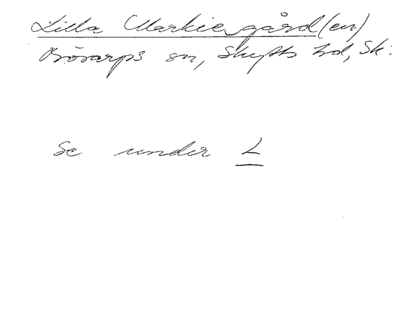 Lilla Markie gård(en)
Börarps sn, Skytts hd, Sk.
Se under L